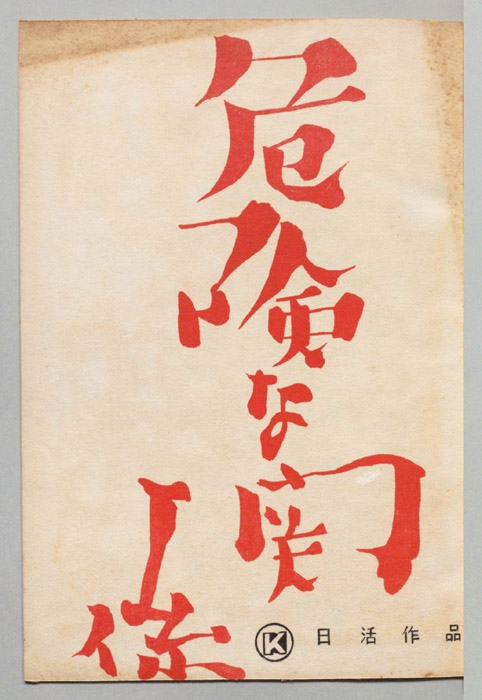 危険な関係
Ⓚ 日活作品